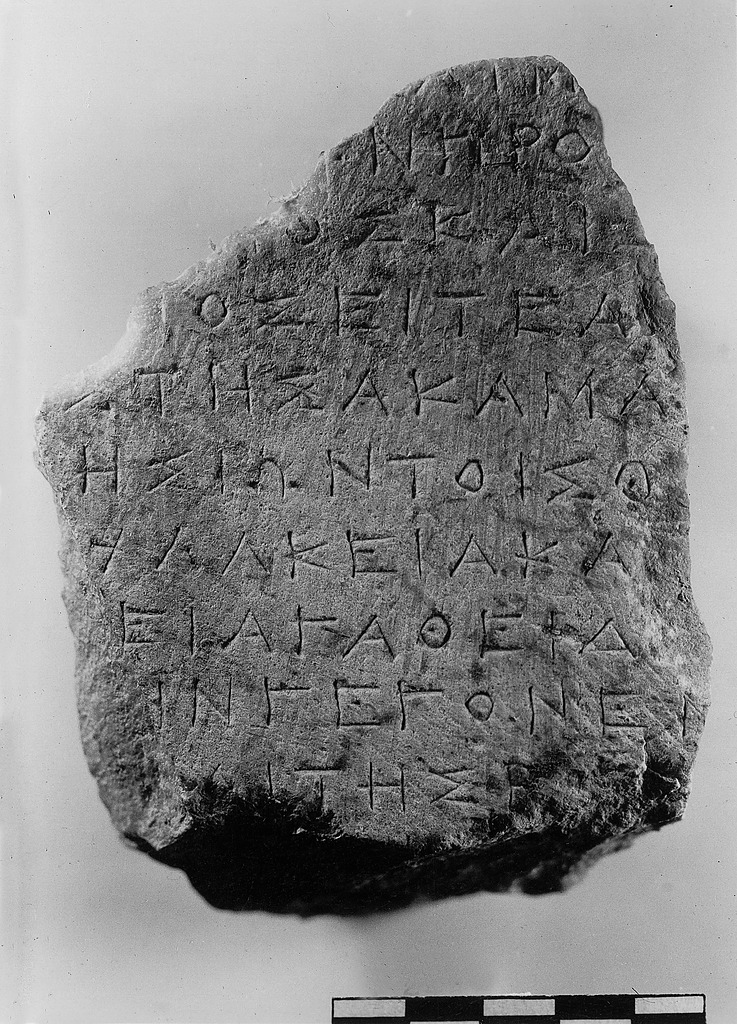 ΝΗΡΟ
ΟΣΚΑΙΣ
ΟΣΕΙΤΕΑ
ΤΗΣΑΚΑΜΑ
ΗΣΙΩΝΤΟΙΣΘ
ΛΑΚΕΙΑΚΑ
ΕΙΑΓΑΘΕΙΔ
ΙΝΓΕΓΟΝΕΝ
ΙΤΗΣ